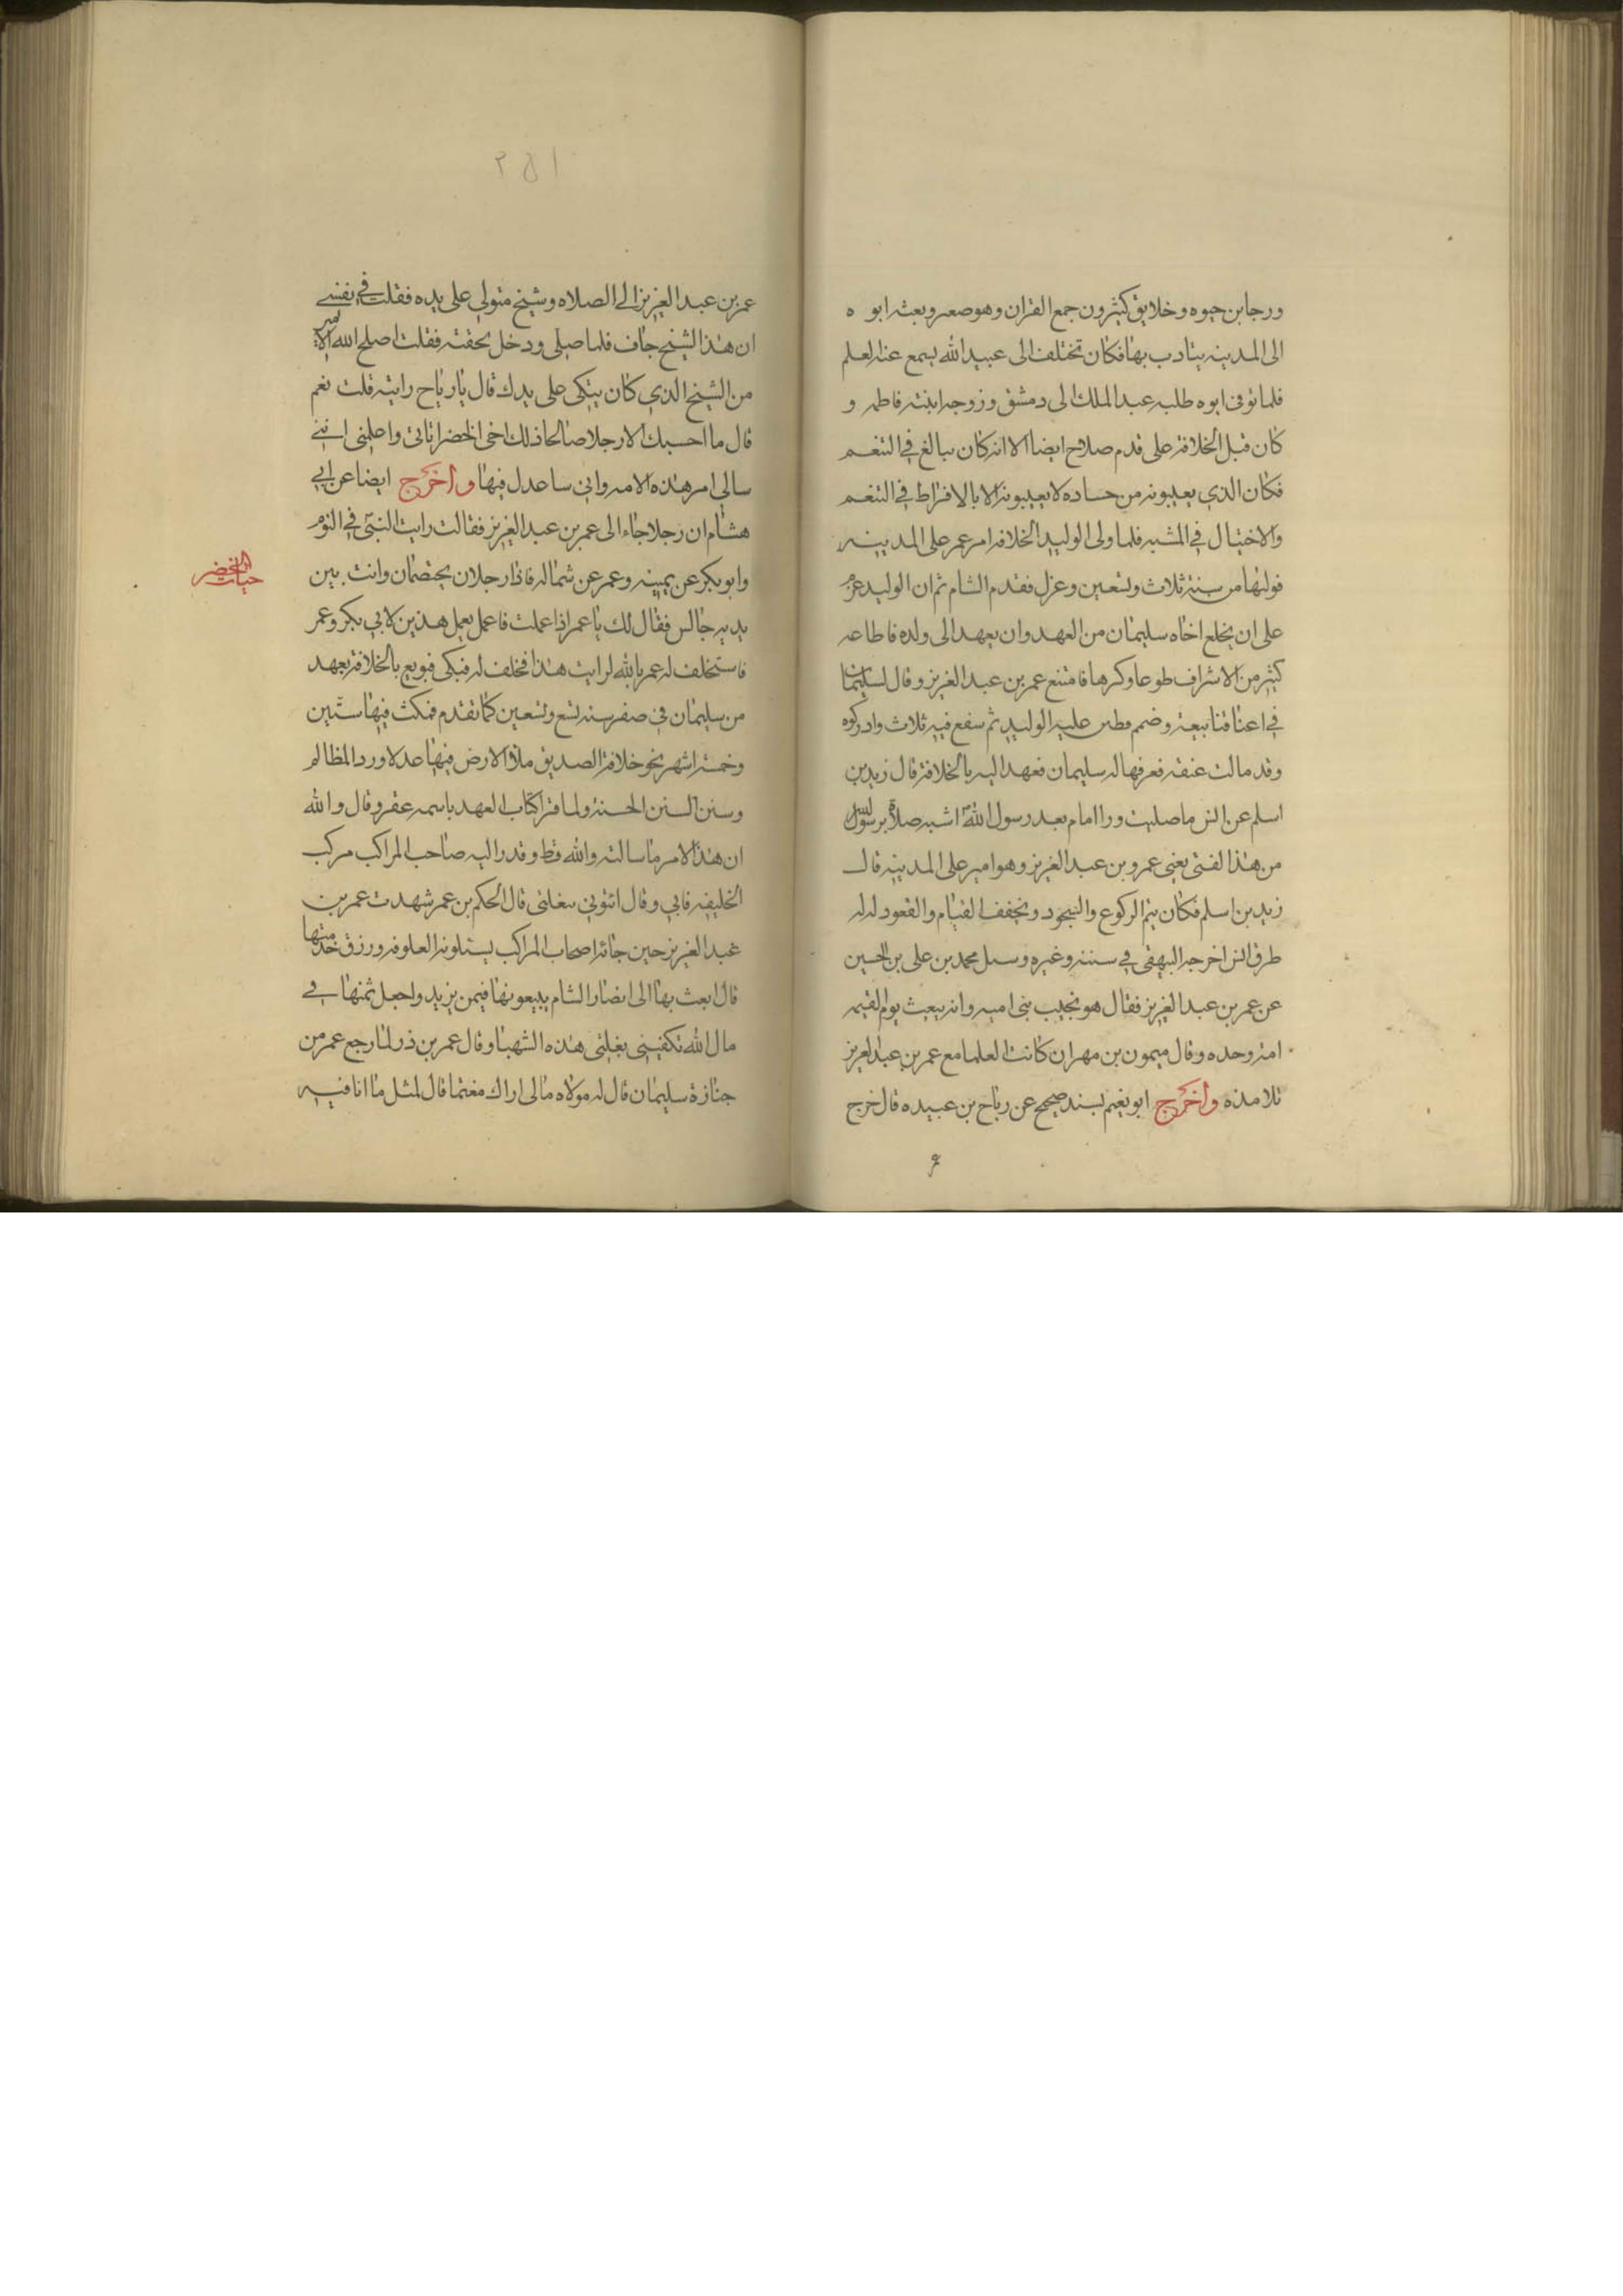 ورجا بن حيوه وخلايق كثيرون جمع القران وهو صغير وبعثه ابوه
الى المدينه يتادب بها فكان تختلف الى عبيد الله يسمع عنه العلم
فلما توفى ابوه طلبه عبد الملك الى دمشق وزوجه ابنته فاطمه و
كان قبل الخلافة على قدم صلاح ايضا الا انه كان يبالغ في التنعم
فكان الذي يعيبونه من حساده لا يعيبونه الا بالافراط في التنعم
والاختيال في المشيه فلما ولى الوليد الخلافه امر عمر على المدينه
فوليها من سنة ثلاث وتسعين وعزل فقدم الشام ثم ان الوليد عزم
على ان يخلع اخاه سليمان من العهد وان يعهد الى ولده فاطاعه
كثير من الاشراف طوعا وكرها فامتنع عمر بن عبد العزيز وقال لسليمان
في اعناقنا بيعة وضمم فطين عليه الوليد ثم شفع فيه ثلاث وادركوه
وقد مالت عنقه فعرفها له سليمان فعهد اليه بالخلافة قال زيد بن
اسلم عن انس ما صليت ورا امام بعد رسول الله اشبه صلاة برسول الله
من هذا الفتى يعنى عمرو بن عبد العزيز وهو امير على المدينه قال
زيد بن اسلم فكان يتم الركوع والسجود ويخفف القيام والقعود له
طرق انس اخرجه البيهقى في سننه وغيره وسل محمد بن على بن الحسين
عن عمر بن عبد العزيز فقال هو نجيب بنى اميه وانه يبعث يوم القيمه
امة وحده وقال ميمون بن مهران كانت العلما مع عمر بن عبد العزيز
تلامذه واخرج ابو نعيم بسند صحيح عن رباح بن عبيده قال خرج
عمر
٢٥١
عمر بن عبد العزيز الى الصلاه وشيخ متولي على يده فقلت في نفسي
ان هذا الشيخ جاف فلما صلى ودخل لحقته فقلت اصلح الله الامير
من الشيخ الذي كان يتكى على يدك قال يا رباح رايته قلت نعم
قال ما احسبك الا رجلا صالحا ذلك اخى الخضر اتانى واعلمنى اننى
سالي امر هذه الامه وانى ساعدل فيها واخرج ايضا عن ابي
هشام ان رجلا جاء الى عمر بن عبد العزيز فقالت رايت النبي في النوم
وابو بكر عن يمينه وعمر عن شماله فاذا رجلان يختصمان وانت بين
يديه جالس فقال لك يا عمر اذا عملت فاعمل بعمل هذين لابي بكر وعمر
فاستخلف له عمر بالله لرايت هذا فخلف له فبكى فبويع بالخلافة بعهد
من سليمان في صفر سنه تسع وتسعين كما تقدم فمكث فيها سنتين
وخمسة اشهر نحو خلافة الصديق ملأ الارض فيها عدلا ورد المظالم
وسنن السنن الحسنة ولما قرا كتاب العهد باسمه عقر وقال والله
ان هذا الامر ما سالته والله قط وقدر اليه صاحب المراكب مركب
الخليفه فابي وقال ائتونى ببغلتى قال الحكم بن عمر شهدت عمر بن
عبد العزيز حين جائه اصحاب المراكب يسئلونه العلوفه ورزق خدمتها
قال ابعث بها الى امصار الشام يبيعونها فيمن يزيد واجعل ثمنها في
مال الله تكفينى بغلتى هذه الشهبا وقال عمر بن ذر لما رجع عمر من
جنازة سليمان قال له مولاه مالى اراك مغتما قال لمثل ما انا فيه
حيات الخضر